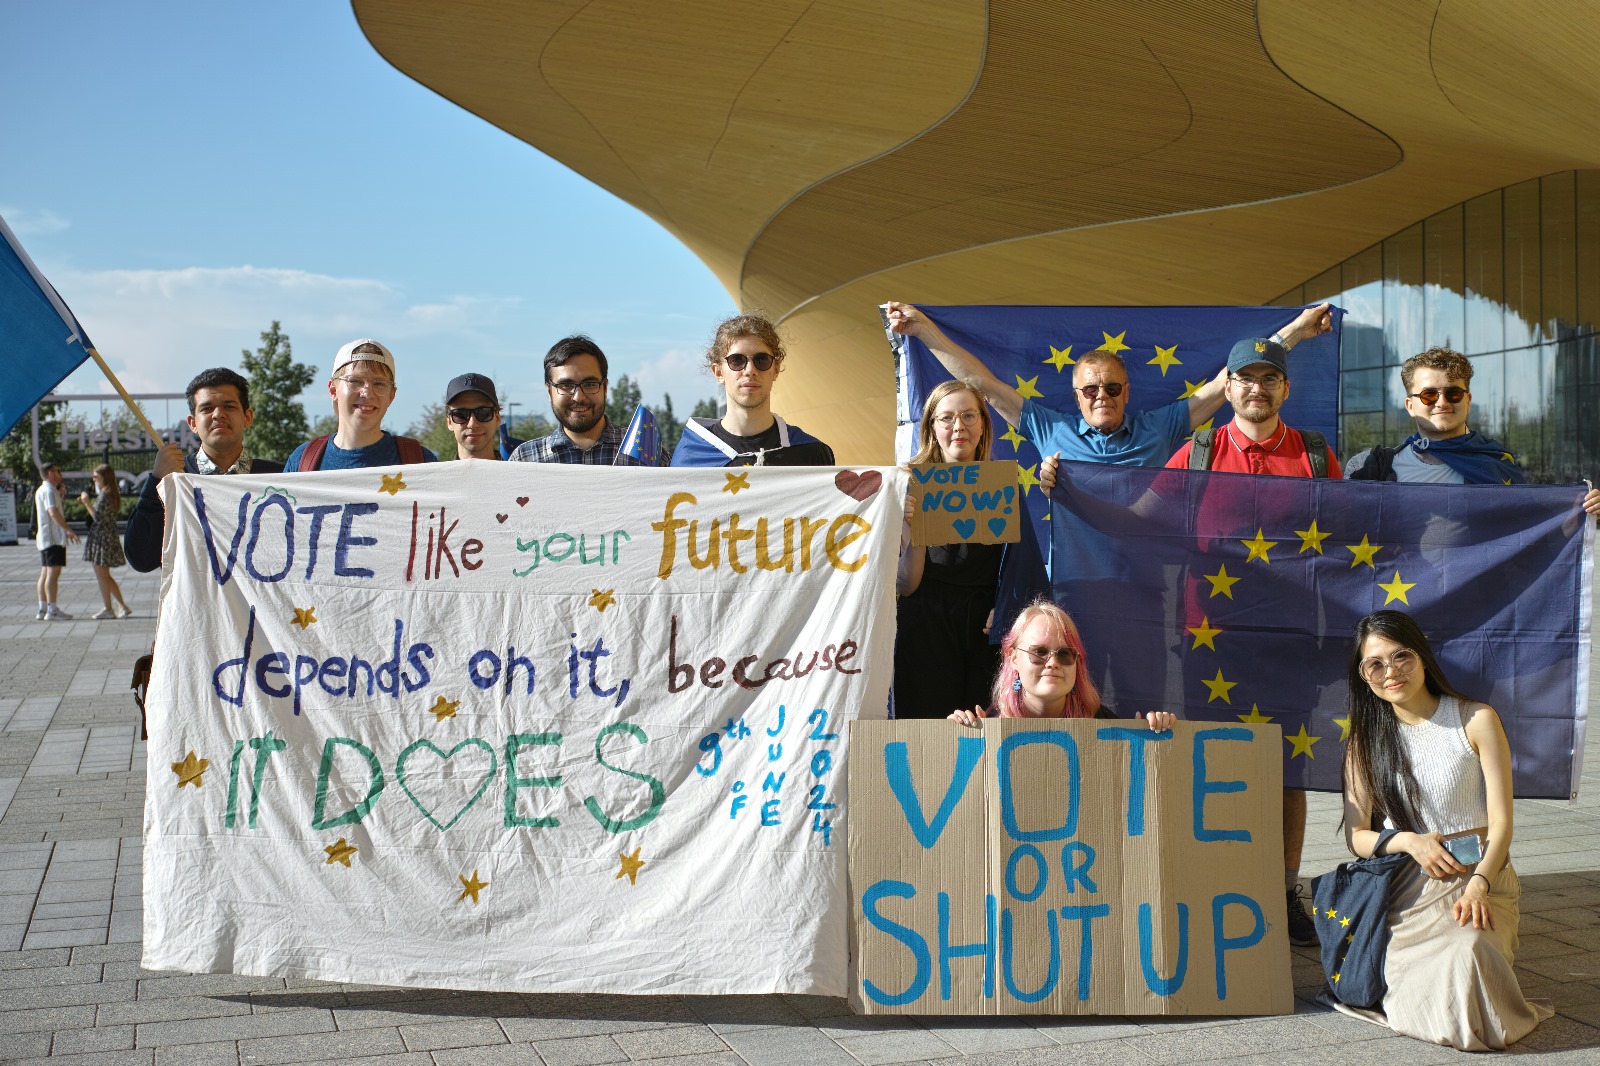 Helsinki
VOTE like your future
depends on it, because
IT DOES
9th OF JUNE 2024
VOTE
NOW!
VOTE
OR
SHUT UP